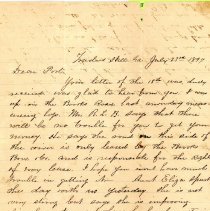 Traders Hill Ga July 23rd 1897
Dear Port,
Your letter of the 18th was duly
received was glad to hear from you. I was
up in the Burke Place last sunday measur
ing logs. Mr. R.L.B. says that there
will be no trouble for you to get your
money He says the land on this side of
the river is only leased by the Brooks
Bros Co. and is responsible for the right
of way lease. I hope you wont have much
trouble in getting it. Aunt Eliza spent
the day with us yesterday. She is not
very strong but says she is improving